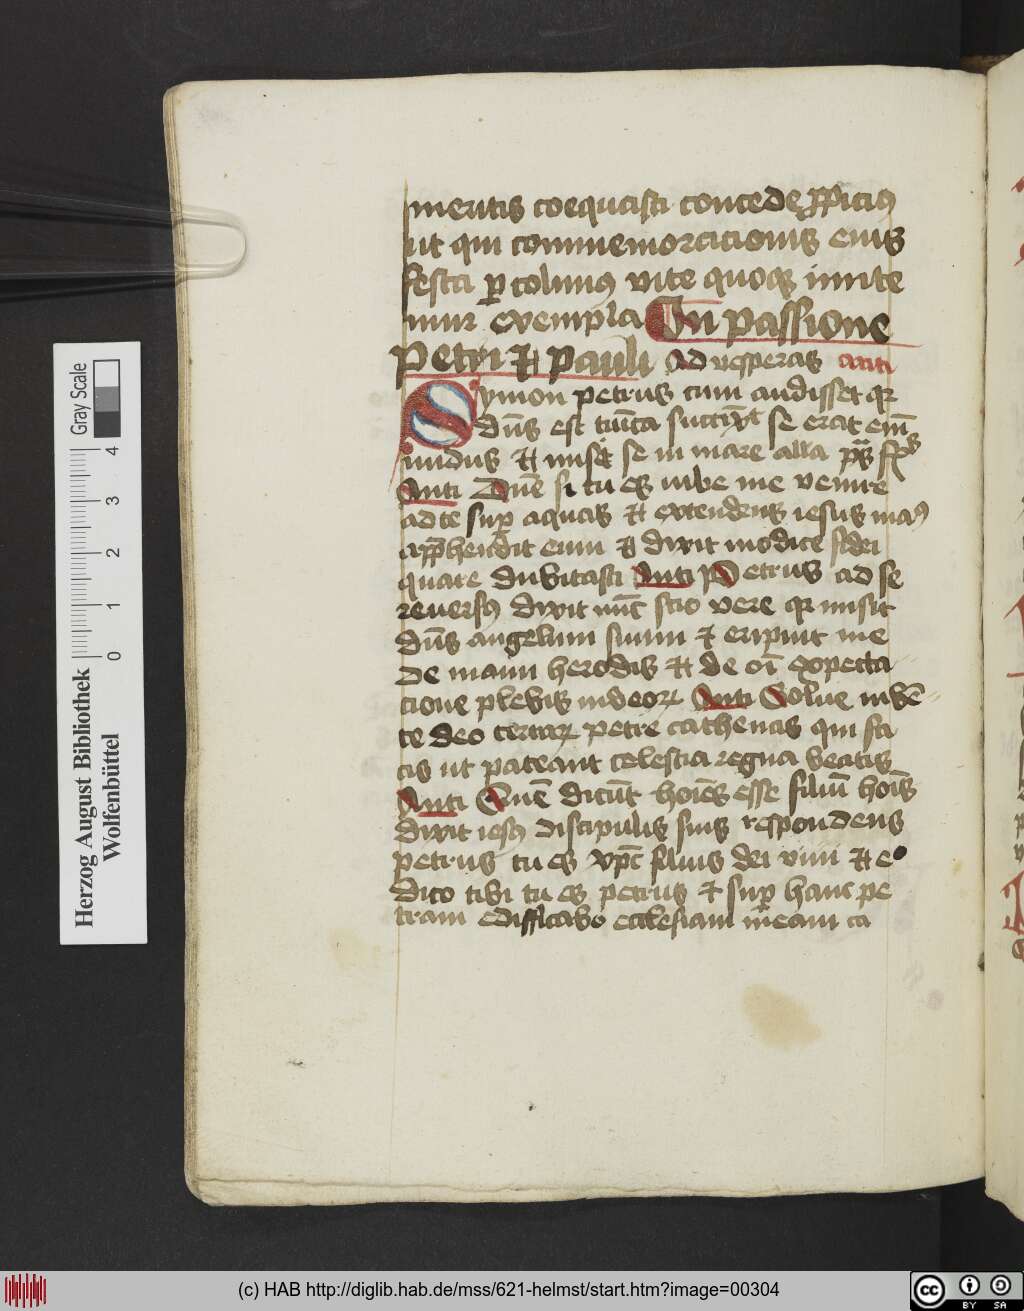 meritis coequasti concede ꝓpicius
ut qui commemoracionis eius
festa ꝑcolimus vite quoqꝫ imite
mur exempla In passione
Petri et pauli Ad vesperas anti
Symon petrus cum audisset qꝛ
dn̄s est tunica succīxit se erat em̄
nudus et misit se in mare alla ps̄
Anti Dn̄e si tu es iube me venire
ad te suꝑ aquas et extendens iesus manꝰ
app̄hendit eum et dixit modice fidei
quare dubitasti Anti Petrus ad se
reuersꝰ dixit nūc scio vere qꝛ misit
dn̄s angelum suum et eripuit me
de manu herodis et de oī expecta
cione plebis iudeoꝝ Anti Solue iubē
te deo terraꝝ petre cathenas qui fa
cis ut pateant celestia regna beatis
Anti Quē dicūt hoīes esse filiū hoīs
dixit iesꝰ discipulis suis respondens
petrus tu es xp̄c filius dei viui et e
dico tibi tu es petrus et suꝑ hanc pe
tram edifficabo ecclesiam meam ca
Herzog August Bibliothek
Wolfenbüttel
0 1 2 3 4
Gray Scale
(c) HAB http://diglib.hab.de/mss/621-helmst/start.htm?image=00304
cc BY SA